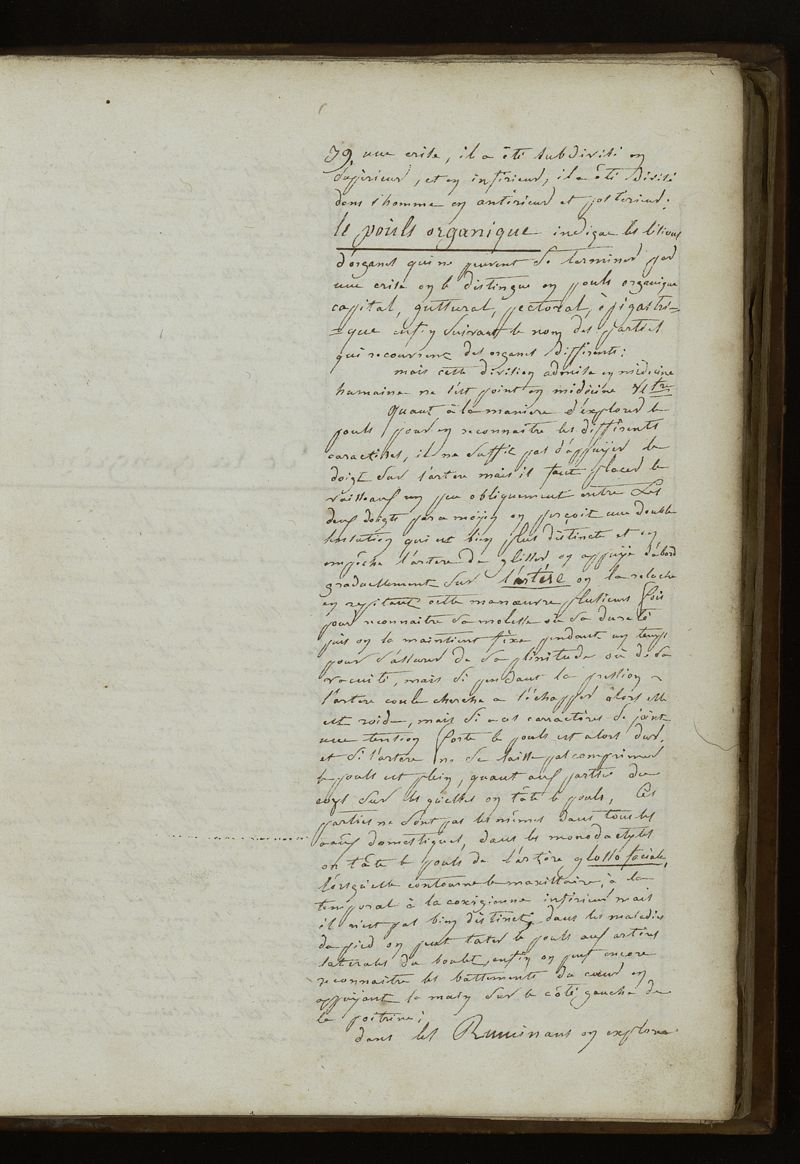 39. une crise, il a été subdivisé en
supérieur, et en inférieur, il a été divisé
dans l'homme en antérieur et postérieur;
le pouls organique indique les lésions
d'organes qui ne peuvent se terminer par
une crise on le distingue en pouls organique
capital, guttural, pectoral, épigastri=
=que enfin suivant le nom des parties
qui recouvrent des organes différents;
mais cette division admise en médecine
humaine ne l'est point en médecine vétre
Quant à la maniere d'éxplorer le
pouls, pour en reconnaitre les différents
caractères, il ne suffit pas d'appuÿer le
doigt sur l'artere mais il faut placer le
vaisseau un peu obliquement entre Les
deux doigts par ce moÿen on perçoit une double
sensation qui est bien plus distincte et on
empêche l'artere de glisser on appuÿe d'abord
graduellement sur l'artère on la relache
en repétant cette manœuvre plusieurs fois
pour reconnaitre sa molesse ou sa dureté
puis on la maintient fixe pendant un temps
pour s'assurer de sa plénitude ou de sa
vacuité, mais si pendant la pression
l'artere coule cherche a s'échapper alors elle
est roide, mais si a ces caractères se joint
une tension forte le pouls est alors dur,
et si l'artere ne se laisse pas comprimer
le pouls est plein, quant aux parties du
corps sur lesquelles on tâte le pouls, Ces
parties ne sont pas les mêmes dans tous les
domestiques, dans les monodactyles
on tâte le pouls de l'artère glosso faciale,
lorsqu'elle contourne le maxillaire, à la
temporal à la coxigienne inférieur mais
il n'est pas bien distinct, dans les maladies
du pied on peut tater le pouls aux artères
laterales du boulet, enfin on peut encore
reconnaitre les battements du cœur en
appuÿant la main sur le côté gauche de
la poitrine;
dans les Ruminans on explore